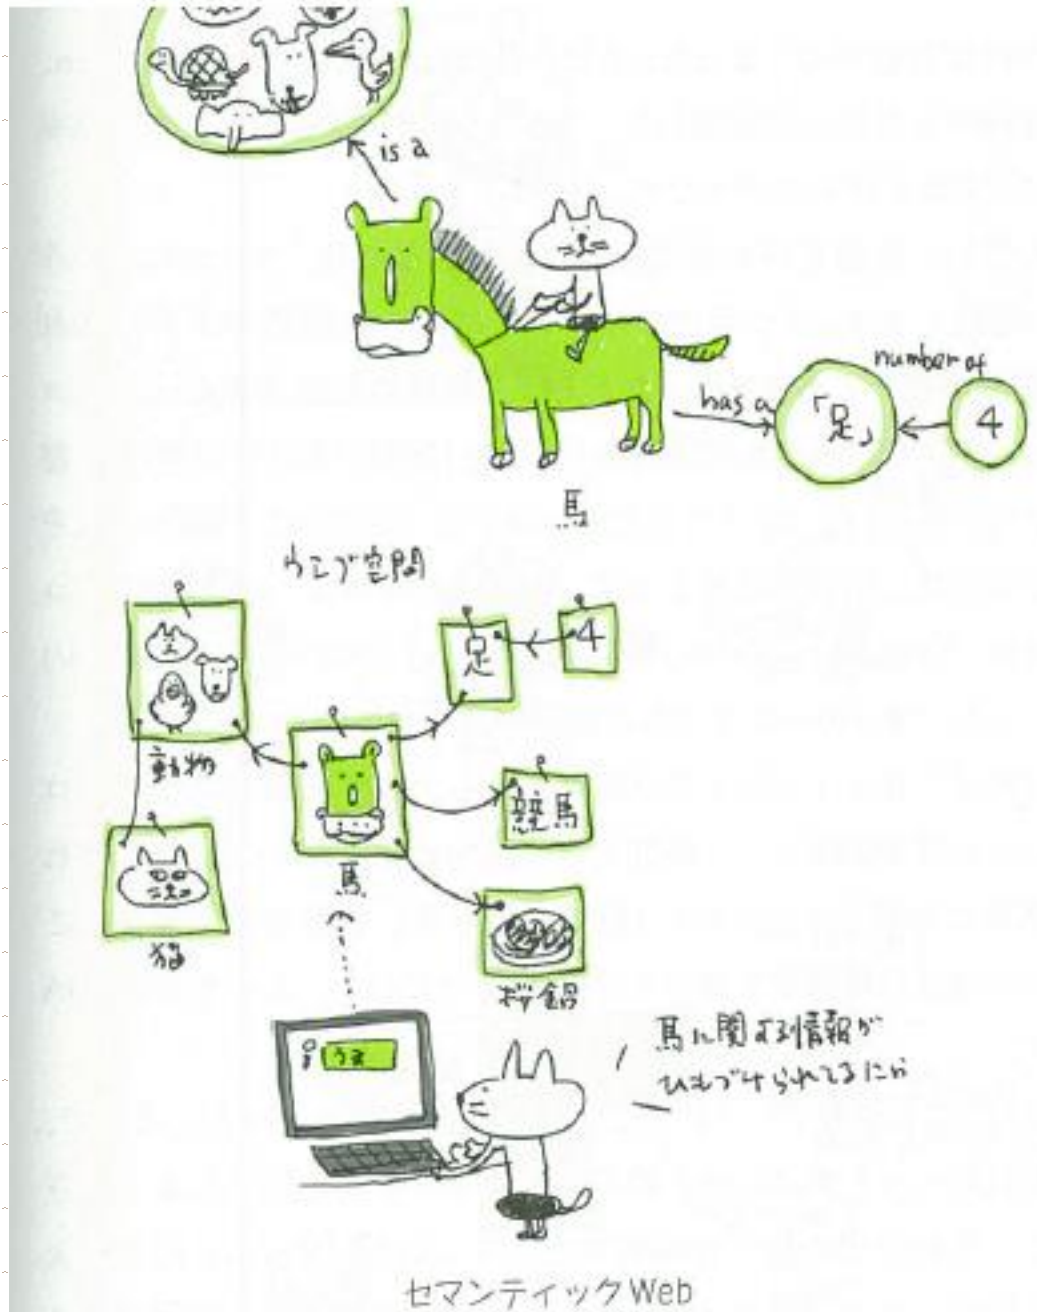 is a
number of
has a
「足」
4
馬
ウェブ空間
足
4
動物
競馬
馬
猫
桜鍋
うま
馬に関する情報が
ひもづけられてるにゃ
セマンティックWeb